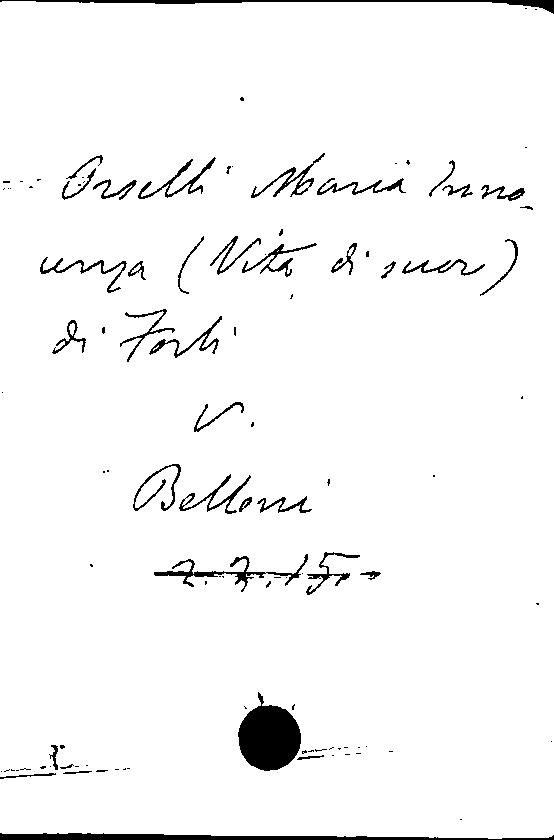 Orselli Maria Inno-
cenza (Vita di suor)
di Forlì
V.
Belloni
2.2.15.